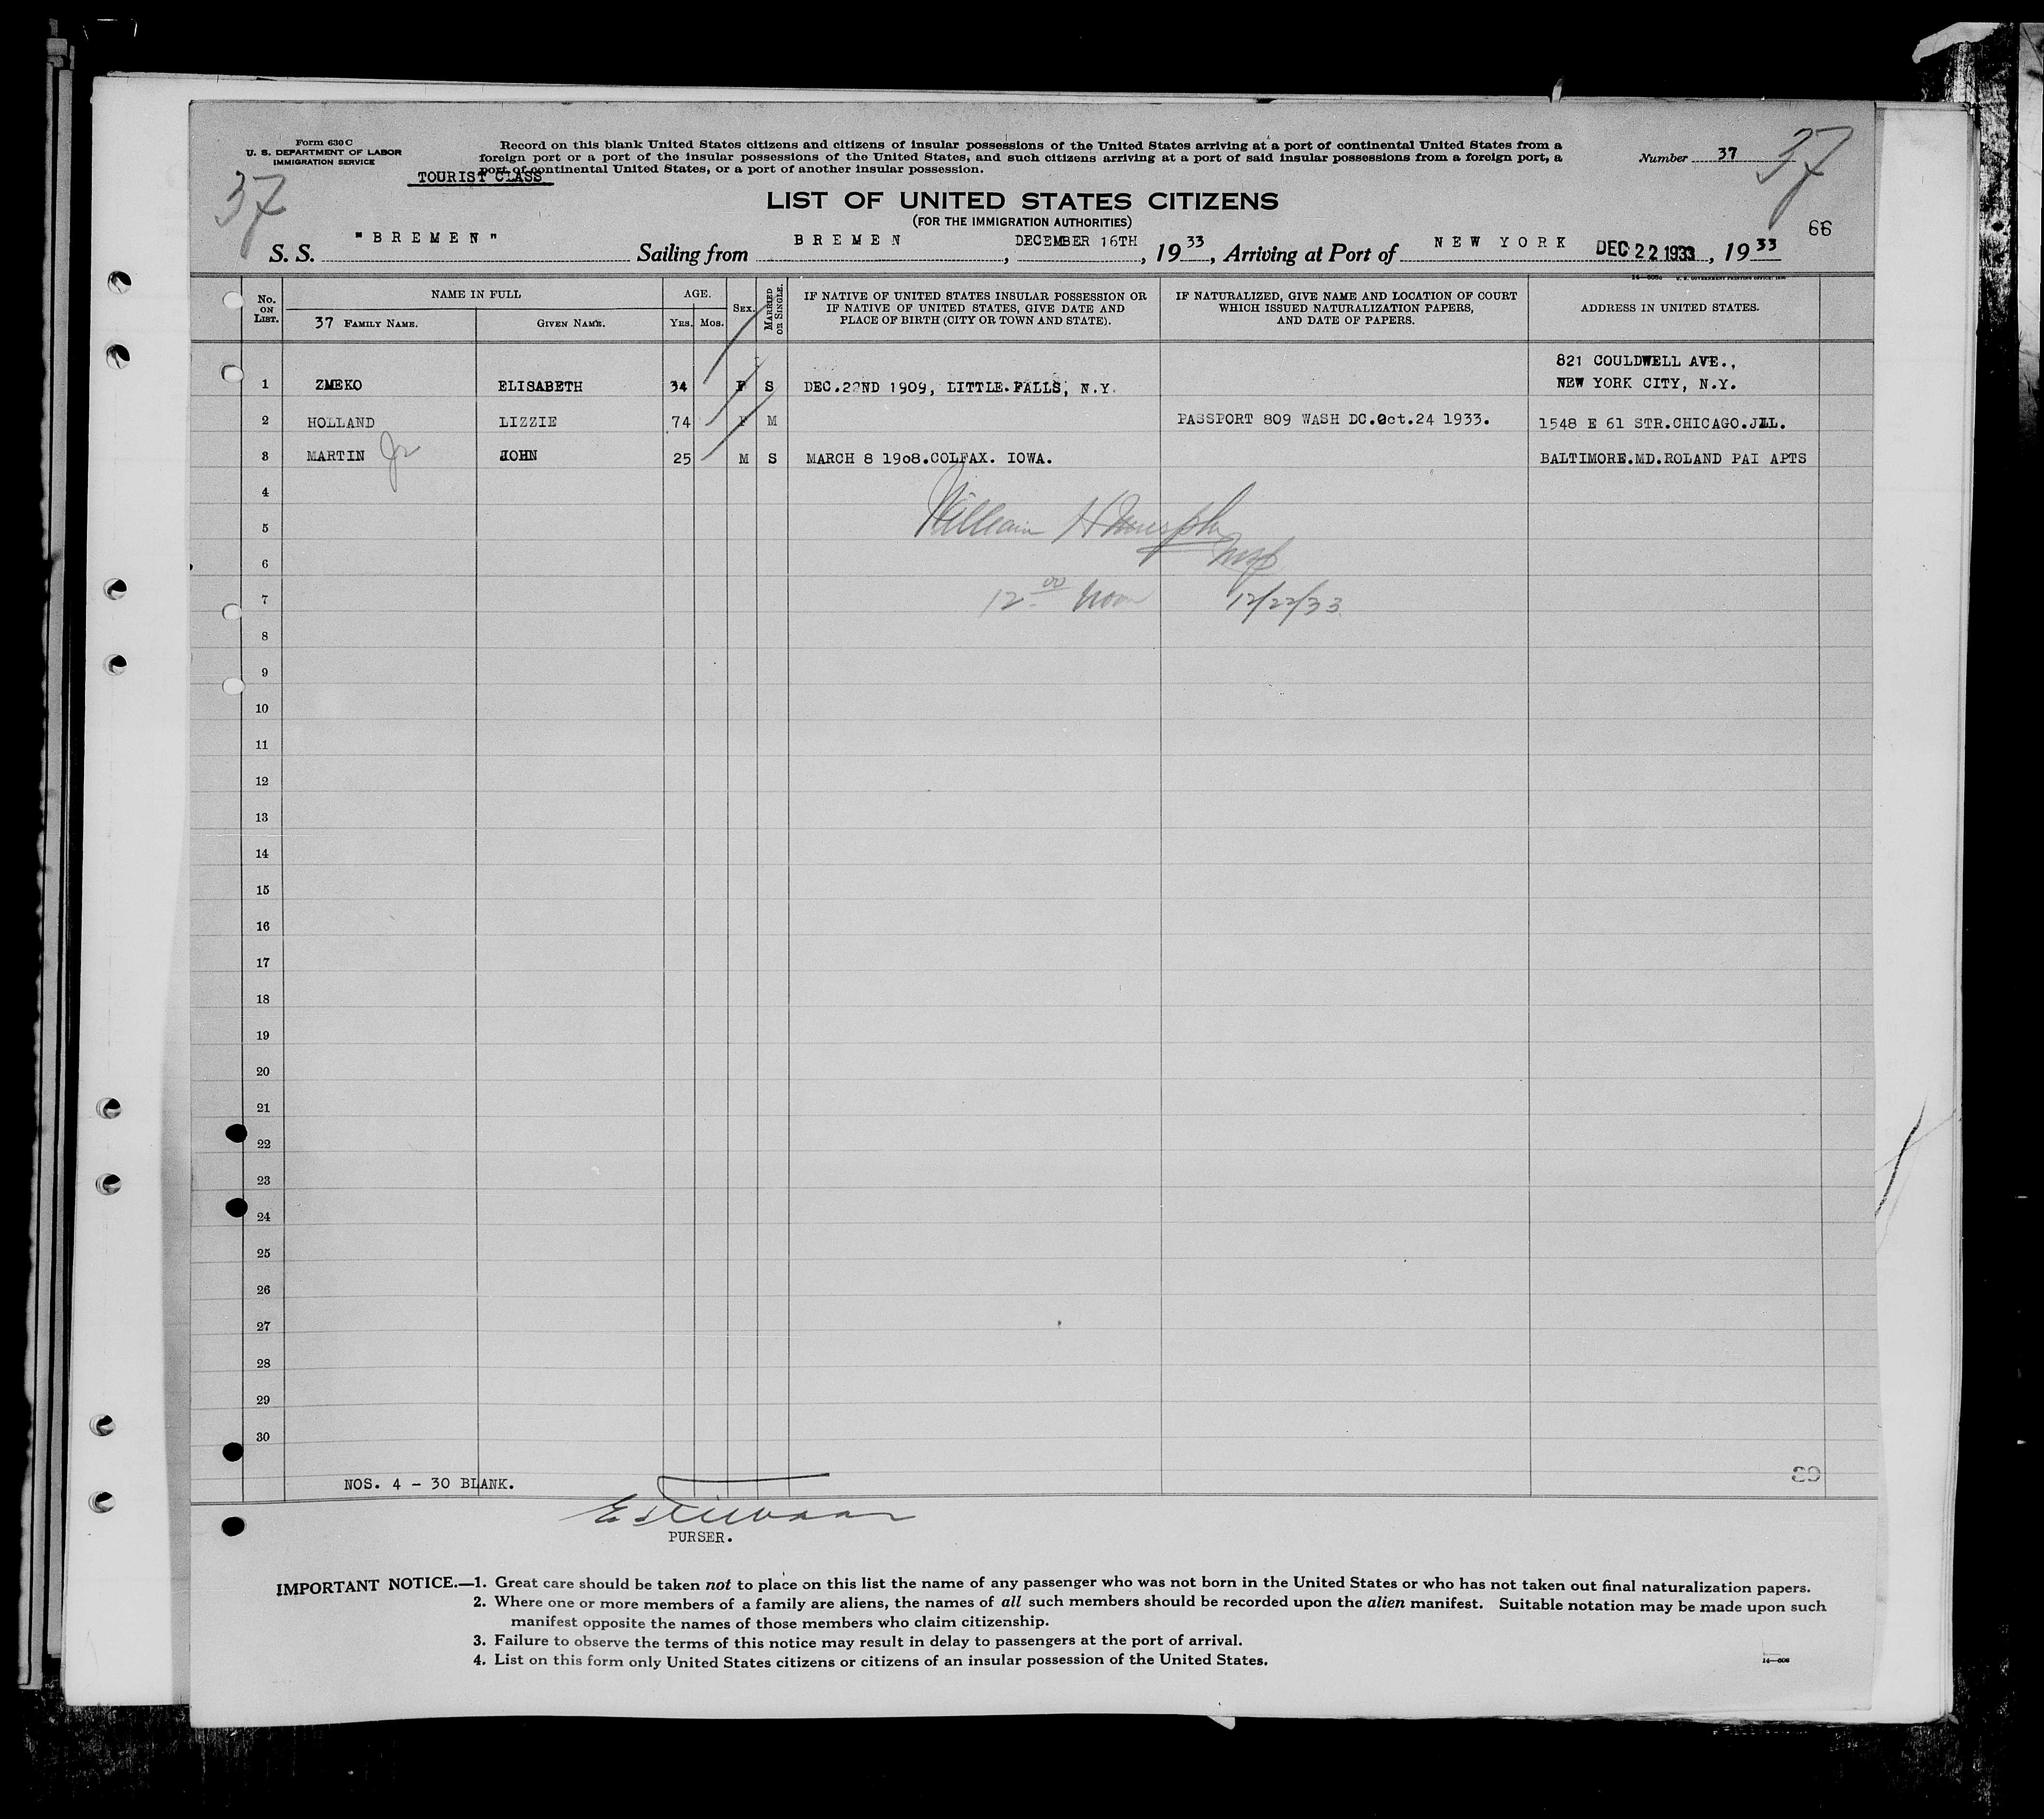 Form 630 C
U. S. DEPARTMENT OF LABOR
IMMIGRATION SERVICE
Record on this blank United States citizens and citizens of insular possessions of the United States arriving at a port of continental United States from a
foreign port or a port of the insular possessions of the United States, and such citizens arriving at a port of said insular possessions from a foreign port, a
port of continental United States, or a port of another insular possession.
TOURIST CLASS
Number 37
37
37
LIST OF UNITED STATES CITIZENS
(FOR THE IMMIGRATION AUTHORITIES)
66
S. S. "BREMEN" Sailing from BREMEN, DECEMBER 16TH, 1933, Arriving at Port of NEW YORK DEC 22 1933, 1933
No. ON LIST.
NAME IN FULL
37 FAMILY NAME.
GIVEN NAME.
AGE.
YRS. MOS.
SEX.
MARRIED OR SINGLE.
IF NATIVE OF UNITED STATES INSULAR POSSESSION OR
IF NATIVE OF UNITED STATES, GIVE DATE AND
PLACE OF BIRTH (CITY OR TOWN AND STATE).
IF NATURALIZED, GIVE NAME AND LOCATION OF COURT
WHICH ISSUED NATURALIZATION PAPERS,
AND DATE OF PAPERS.
ADDRESS IN UNITED STATES.
821 COULDWELL AVE.,
1 ZMEKO ELISABETH 34 F S DEC.22ND 1909, LITTLE.FALLS, N.Y. NEW YORK CITY, N.Y.
2 HOLLAND LIZZIE 74 F M PASSPORT 809 WASH DC.Oct.24 1933. 1548 E 61 STR.CHICAGO.JLL.
3 MARTIN Jr JOHN 25 M S MARCH 8 19o8.COLFAX. IOWA. BALTIMORE.MD.ROLAND PAI APTS
4
5 William H
6 Insp
7 12 00 Noon 12/22/33
8
9
10
11
12
13
14
15
16
17
18
19
20
21
22
23
24
25
26
27
28
29
30
NOS. 4 - 30 BLANK.
PURSER.
IMPORTANT NOTICE.—1. Great care should be taken not to place on this list the name of any passenger who was not born in the United States or who has not taken out final naturalization papers.
2. Where one or more members of a family are aliens, the names of all such members should be recorded upon the alien manifest. Suitable notation may be made upon such
manifest opposite the names of those members who claim citizenship.
3. Failure to observe the terms of this notice may result in delay to passengers at the port of arrival.
4. List on this form only United States citizens or citizens of an insular possession of the United States.